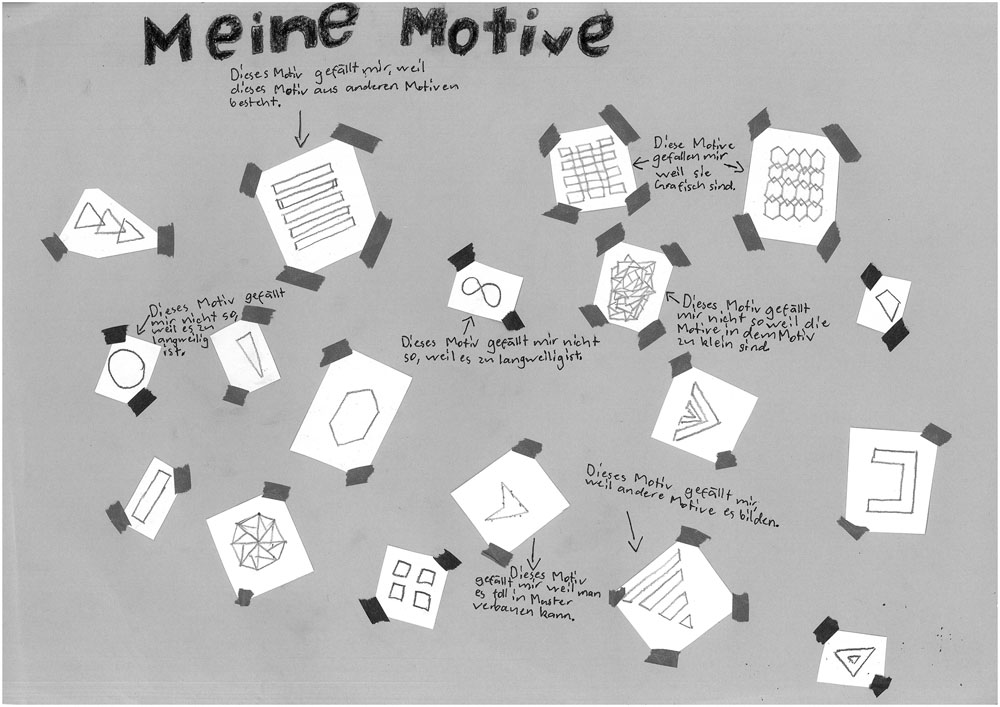 Meine Motive
Dieses Motiv gefällt mir, weil
dieses Motiv aus anderen Motiven
besteht.
Diese Motive
gefallen mir
weil sie
Grafisch sind.
Dieses Motiv gefällt
mir nicht so,
weil es zu
langweilig
ist.
Dieses Motiv gefällt mir nicht
so, weil es zu langwellig ist.
Dieses Motiv gefällt
mir nicht so weil die
Motive in dem Motiv
zu klein sind
Dieses Motiv gefällt mir,
weil andere Motive es bilden.
Dieses Motiv
gefällt mir weil man
es toll in Muster
verbauen kann.